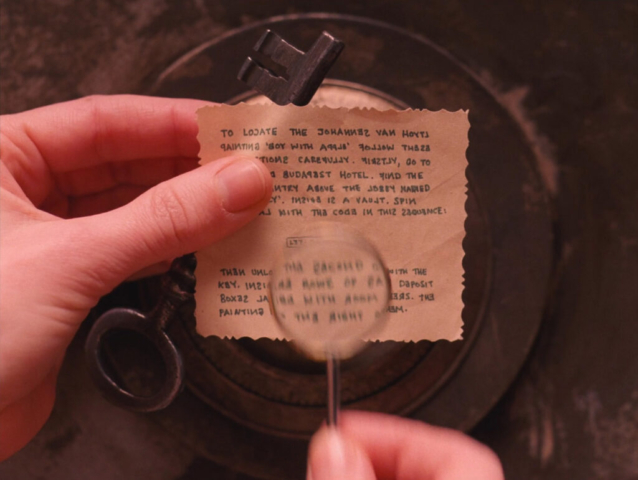 TO LOCATE THE JOHANNES VAN HOYTL
PAINTING 'BOY WITH APPLE' FOLLOW THESE
CAREFULLY. FIRSTLY, GO TO
BUDAPEST HOTEL. FIND THE
ABOVE THE LOBBY MARKED
INSIDE IS A VAULT. SPIN
WITH THE CODE IN THIS SEQUENCE:
THEN THE SECOND WITH THE
KEY. ROWS OF DEPOSIT
BOXES WITH ROOM THE
PAINTING THE RIGHT